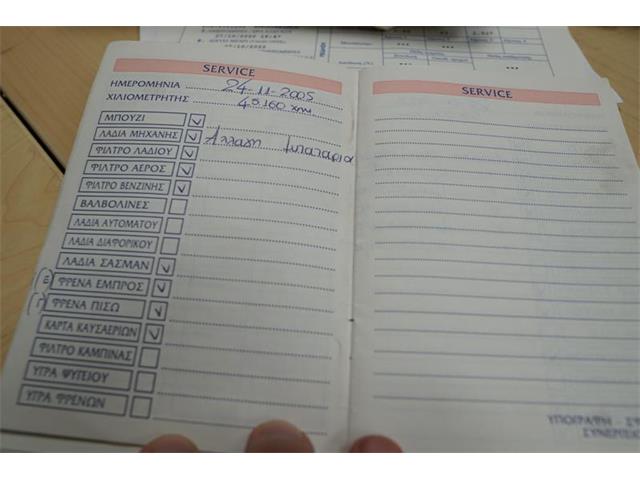 SERVICE
ΗΜΕΡΟΜΗΝΙΑ 24-11-2005
ΧΙΛΙΟΜΕΤΡΗΤΗΣ 45.160 χλμ.
ΜΠΟΥΖΙ
ΛΑΔΙΑ ΜΗΧΑΝΗΣ Αλλαγη μπαταρια
ΦΙΛΤΡΟ ΛΑΔΙΟΥ
ΦΙΛΤΡΟ ΑΕΡΟΣ
ΦΙΛΤΡΟ ΒΕΝΖΙΝΗΣ
ΒΑΛΒΟΛΙΝΕΣ
ΛΑΔΙΑ ΑΥΤΟΜΑΤΟΥ
ΛΑΔΙΑ ΔΙΑΦΟΡΙΚΟΥ
ΛΑΔΙΑ ΣΑΣΜΑΝ
ΦΡΕΝΑ ΕΜΠΡΟΣ
ΦΡΕΝΑ ΠΙΣΩ
ΚΑΡΤΑ ΚΑΥΣΑΕΡΙΩΝ
ΦΙΛΤΡΟ ΚΑΜΠΙΝΑΣ
ΥΓΡΑ ΨΥΓΕΙΟΥ
ΥΓΡΑ ΦΡΕΝΩΝ
SERVICE
ΥΠΟΓΡΑΦΗ - ΣΦ